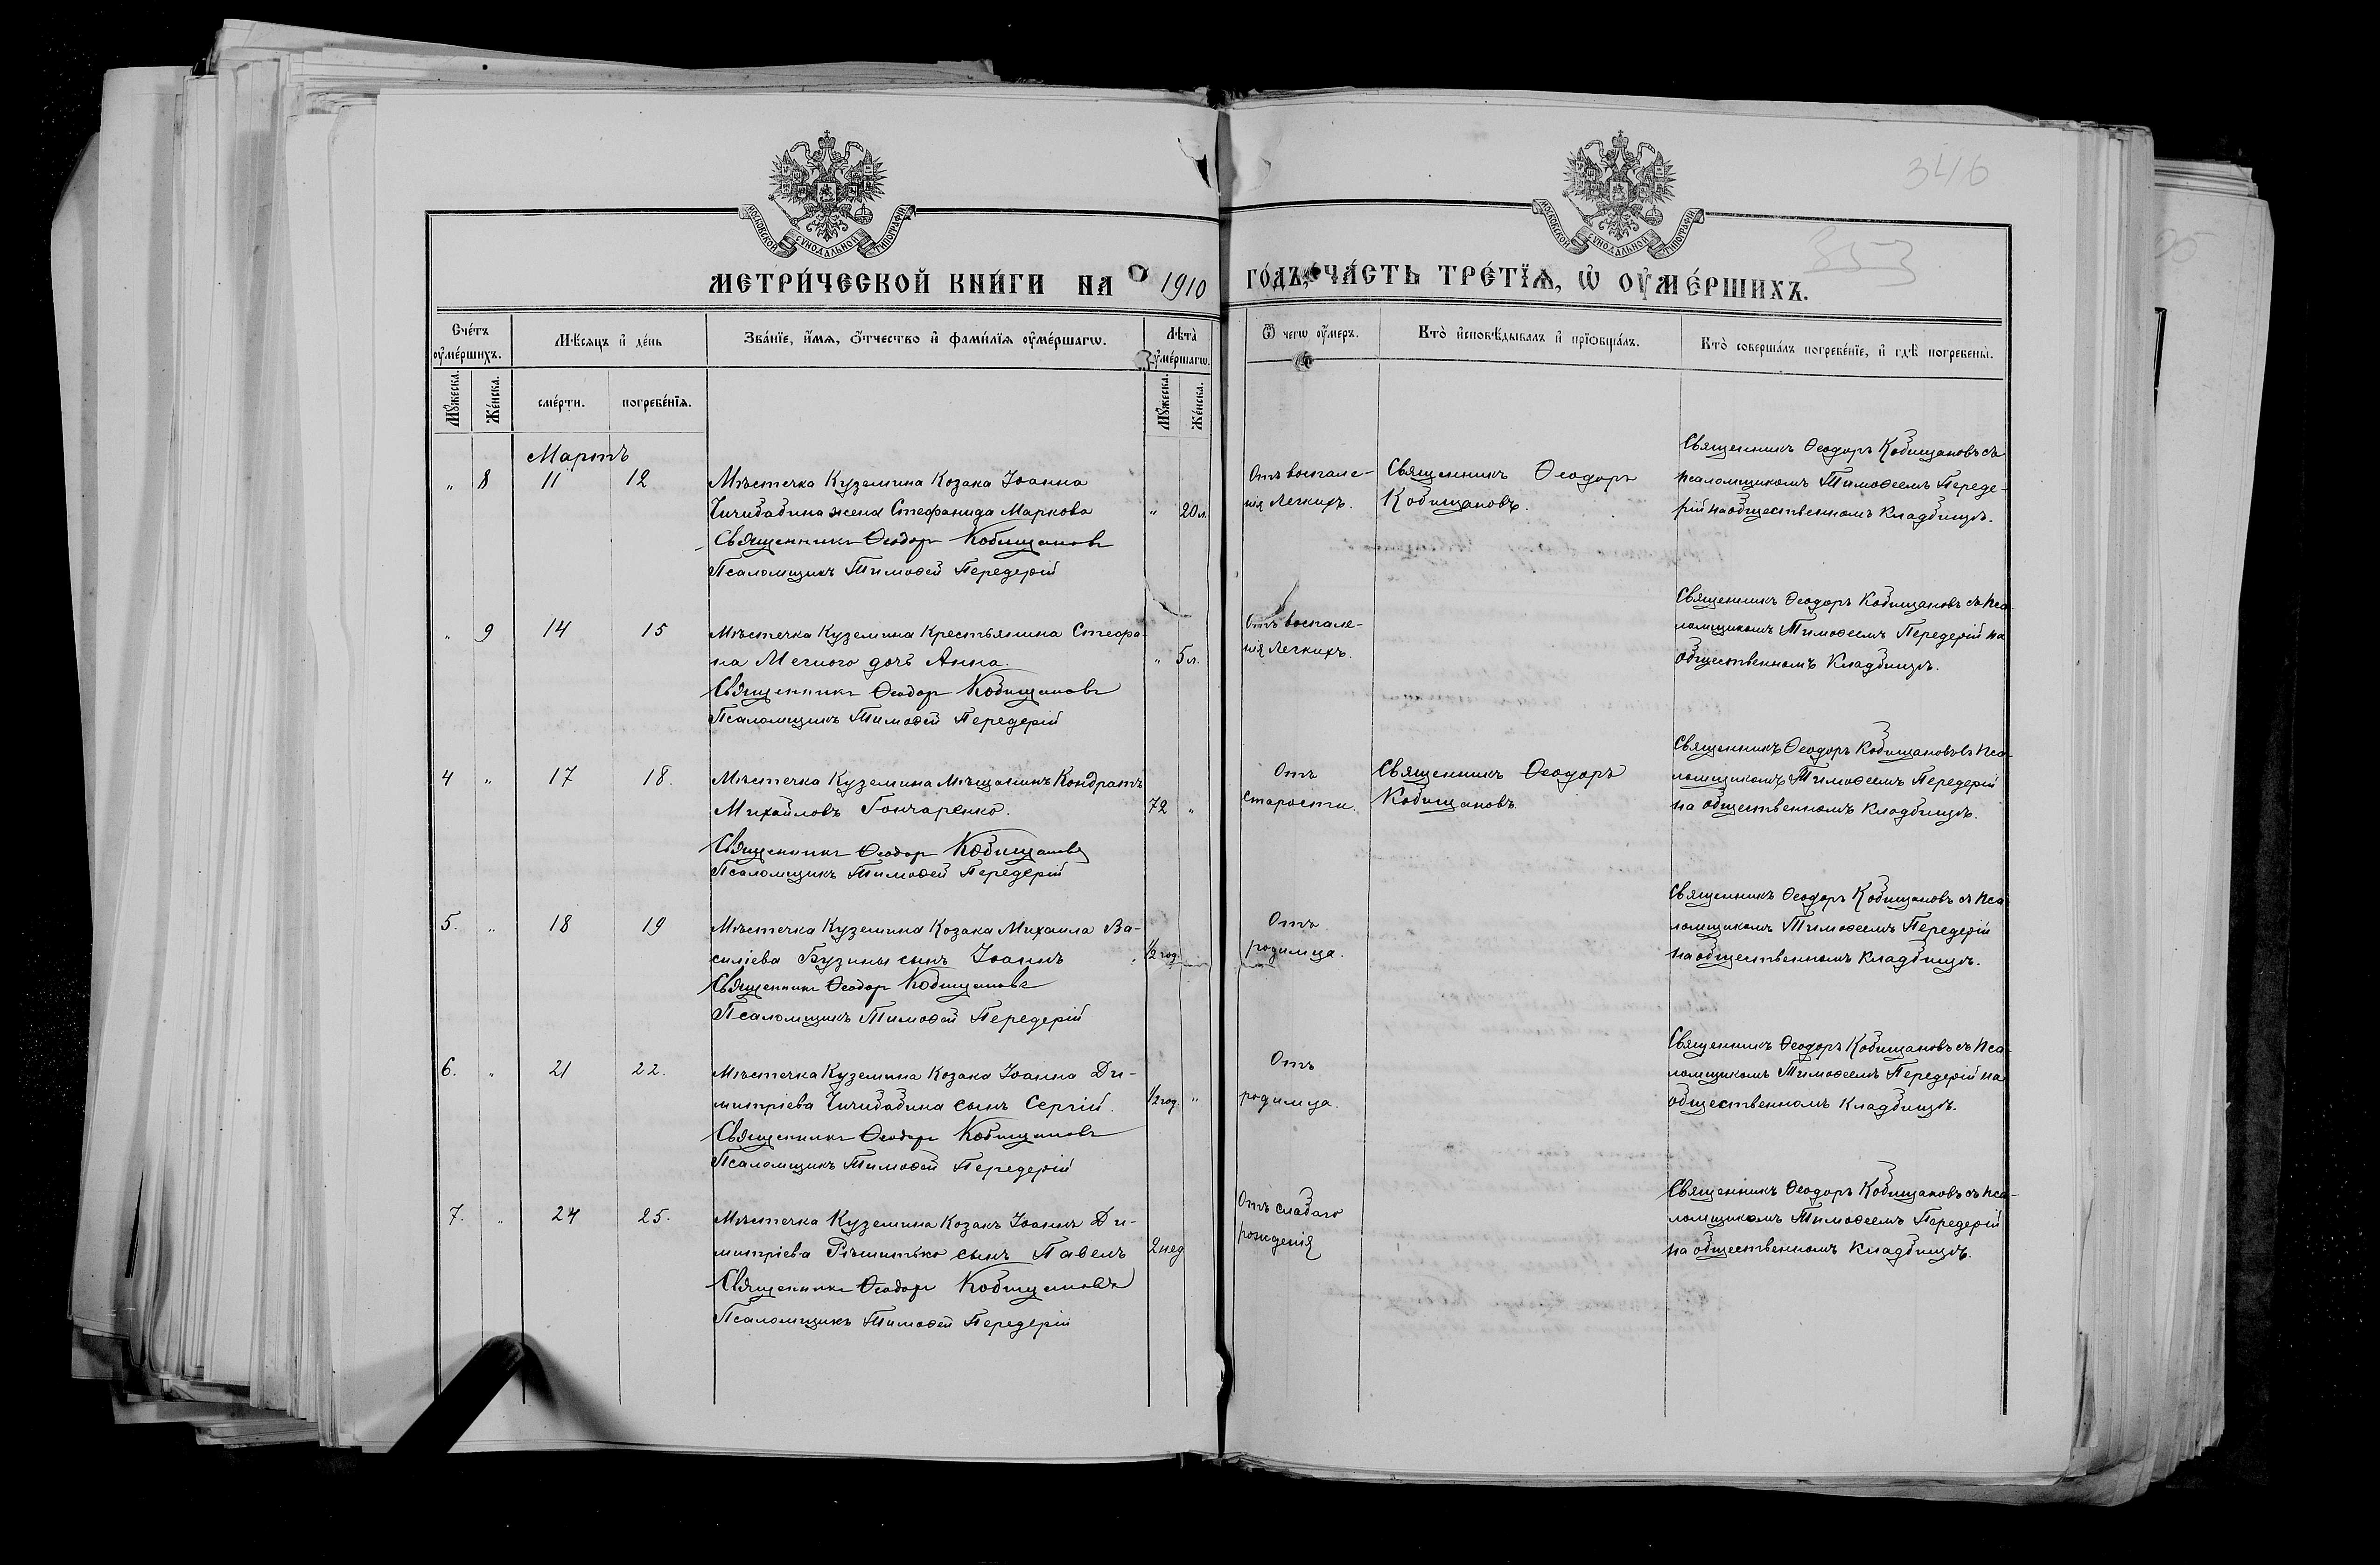 МОСКОВСКОЙ СѴНОДАЛЬНОЙ ТИПОГРАФІИ
МОСКОВСКОЙ СѴНОДАЛЬНОЙ ТИПОГРАФІИ
346
353
МЕТРИ́ЧЕСКОЙ КНИ́ГИ НА 1910 ГО́ДЪ, ЧА́СТЬ ТРЕ́ТЇѦ, Ѡ҆ ОУ҆МЕ́РШИХЪ.
Сче́тъ оу҆ме́ршихъ.
Мѣ́сяцъ и҆ де́нь
Зва́нїе, и҆́мѧ, ѻ҆́тчество и҆ фами́лїѧ оу҆ме́ршагѡ.
Лѣ́та оу҆ме́ршагѡ.
Ѿ чегѡ̀ оу҆́меръ.
Кто̀ и҆сповѣ́дывалъ и҆ прїѡбща́лъ.
Кто̀ соверша́лъ погребе́нїе, и҆ гдѣ̀ погребены̀.
Мꙋ́жеска.
Же́нска.
сме́рти.
погребе́нїѧ.
Мꙋ́жеска.
Же́нска.
Мартъ
" 8 11 12
Мѣстечка Куземина Козака Іоанна
Чичибабина жена Стефанида Маркова
" 20 л.
Священникъ Ѳеодоръ Кобищановъ
Псаломщикъ Тимоѳей Передерій
Отъ воспале-
нія легкихъ.
Священникъ Ѳеодоръ
Кобищановъ.
Священникъ Ѳеодоръ Кобищановъ съ
псаломщикомъ Тимоѳеемъ Переде-
рій на общественномъ кладбищѣ.
" 9 14 15
Мѣстечка Куземина Крестьянина Стефа-
на дочь Анна.
" 5 л.
Священникъ Ѳеодоръ Кобищановъ
Псаломщикъ Тимоѳей Передерій
Отъ воспале-
нія легкихъ.
Священникъ Ѳеодоръ Кобищановъ съ пса-
ломщикомъ Тимоѳеемъ Передерій на
общественномъ кладбищѣ.
4 " 17 18.
Мѣстечка Куземина Мѣщанинъ Кондратъ
Михайловъ Гончаренко.
72 "
Священникъ Ѳеодоръ Кобищановъ
Псаломщикъ Тимоѳей Передерій
Отъ
старости.
Священникъ Ѳеодоръ
Кобищановъ.
Священникъ Ѳеодоръ Кобищановъ съ пса-
ломщикомъ Тимоѳеемъ Передерій
на общественномъ кладбищѣ.
5. " 18 19
Мѣстечка Куземина Козака Михаила Ва-
силіева Бузины сынъ Іоаннъ
1/2 год.
Священникъ Ѳеодоръ Кобищановъ
Псаломщикъ Тимоѳей Передерій
Отъ
родимца.
Священникъ Ѳеодоръ Кобищановъ съ пса-
ломщикомъ Тимоѳеемъ Передерій
на общественномъ кладбищѣ.
6. " 21 22.
Мѣстечка Куземина Козака Іоанна Ди-
митріева Чичибабина сынъ Сергій.
1/2 год. "
Священникъ Ѳеодоръ Кобищановъ
Псаломщикъ Тимоѳей Передерій
Отъ
родимца.
Священникъ Ѳеодоръ Кобищановъ съ пса-
ломщикомъ Тимоѳеемъ Передерій на
общественномъ кладбищѣ.
7. " 24 25.
Мѣстечка Куземина Козакъ Іоаннъ Ди-
митріева Рѣшитько сынъ Павелъ
2 нед
Священникъ Ѳеодоръ Кобищановъ
Псаломщикъ Тимоѳей Передерій
Отъ слабаго
рожденія
Священникъ Ѳеодоръ Кобищановъ съ пса-
ломщикомъ Тимоѳеемъ Передерій
на общественномъ кладбищѣ.